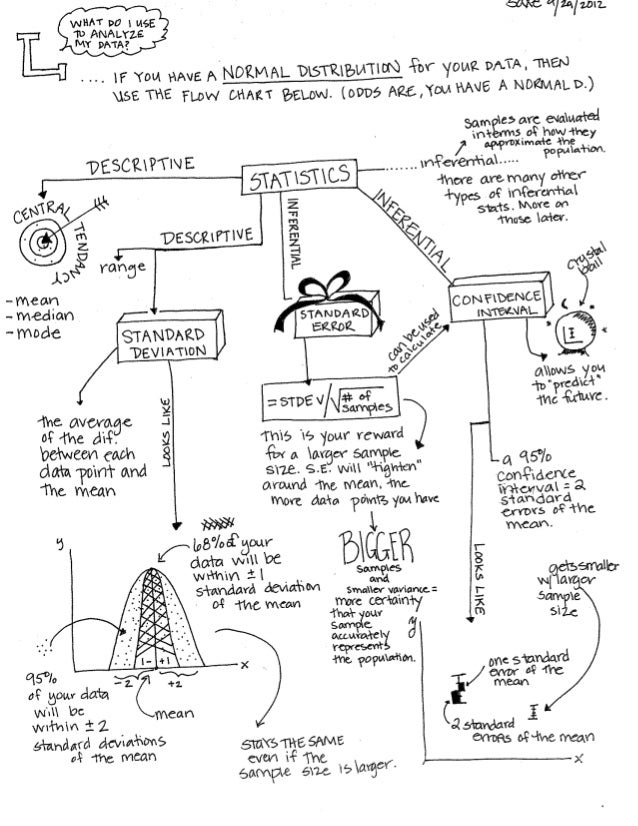 DATE 9/29/2012
WHAT DO I USE
TO ANALYZE
MY DATA?
.... IF YOU HAVE A NORMAL DISTRIBUTION for YOUR DATA, THEN
USE THE FLOW CHART BELOW. (ODDS ARE, YOU HAVE A NORMAL D.)
Samples are evaluated
interms of how they
approximate the
population.
DESCRIPTIVE
STATISTICS
inferential.....
there are many other
types of inferential
stats. More on
those later.
CENTRAL TENDANCY
-mean
-median
-mode
DESCRIPTIVE
range
INFERENTIAL
INFERENTIAL
STANDARD
DEVIATION
STANDARD
ERROR
CONFIDENCE
INTERVAL
crystal
ball
can be used
to calculate
allows you
to "predict"
the future.
the average
of the dif.
between each
data point and
the mean
LOOKS LIKE
= STDEV/√# of
samples
This is your reward
for a larger sample
size. S.E. will "tighten"
around the mean, the
more data points you have
a 95%
confidence
interval = 2
standard
errors of the
mean.
LOOKS LIKE
68% of your
data will be
within ±1
standard deviation
of the mean
BIGGER
samples
and
smaller variance =
more certainty
that your
sample
accurately
represents
the population.
gets smaller
w/ larger
sample
size
y
x
1- +1
-2 +2
mean
95%
of your data
will be
within ±2
standard deviations
of the mean
STAYS THE SAME
even if the
sample size is larger.
y
one standard
error of the
mean
2 standard
errors of the mean
x